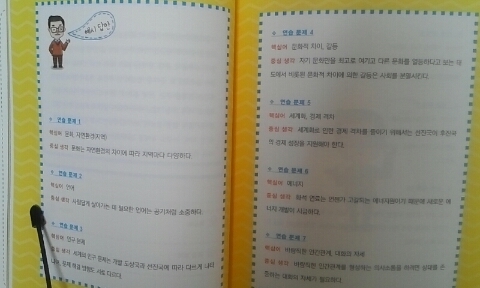 예시 답안
연습 문제 1
핵심어 문화, 자연환경(지역)
중심 생각 문화는 자연환경의 차이에 따라 지역마다 다양하다.
연습 문제 2
핵심어 언어
중심 생각 사람답게 살아가는 데 필요한 언어는 공기처럼 소중하다.
연습 문제 3
핵심어 인구 문제
중심 생각 세계의 인구 문제는 개발 도상국과 선진국에 따라 다르게 나타
나며, 문제 해결 방법도 서로 다르다.
연습 문제 4
핵심어 문화적 차이, 갈등
중심 생각 자기 문화만을 최고로 여기고 다른 문화를 열등하다고 보는 태
도에서 비롯된 문화적 차이에 의한 갈등은 사회를 분열시킨다.
연습 문제 5
핵심어 세계화, 경제 격차
중심 생각 세계화로 인한 경제 격차를 줄이기 위해서는 선진국이 후진국
의 경제 성장을 지원해야 한다.
연습 문제 6
핵심어 에너지
중심 생각 화석 연료는 언젠가 고갈되는 에너지원이기 때문에 새로운 에
너지 개발이 시급하다.
연습 문제 7
핵심어 바람직한 인간관계, 대화의 자세
중심 생각 바람직한 인간관계를 형성하는 의사소통을 하려면 상대를 존
중하는 대화의 자세가 필요하다.